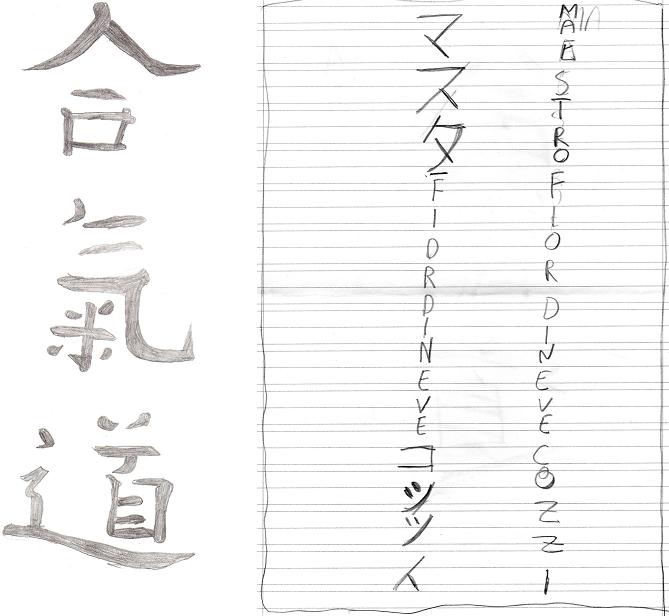 合氣道
マスターFIORDINEVEコッツイ
MAESTRO FIOR DINEVE COZZI